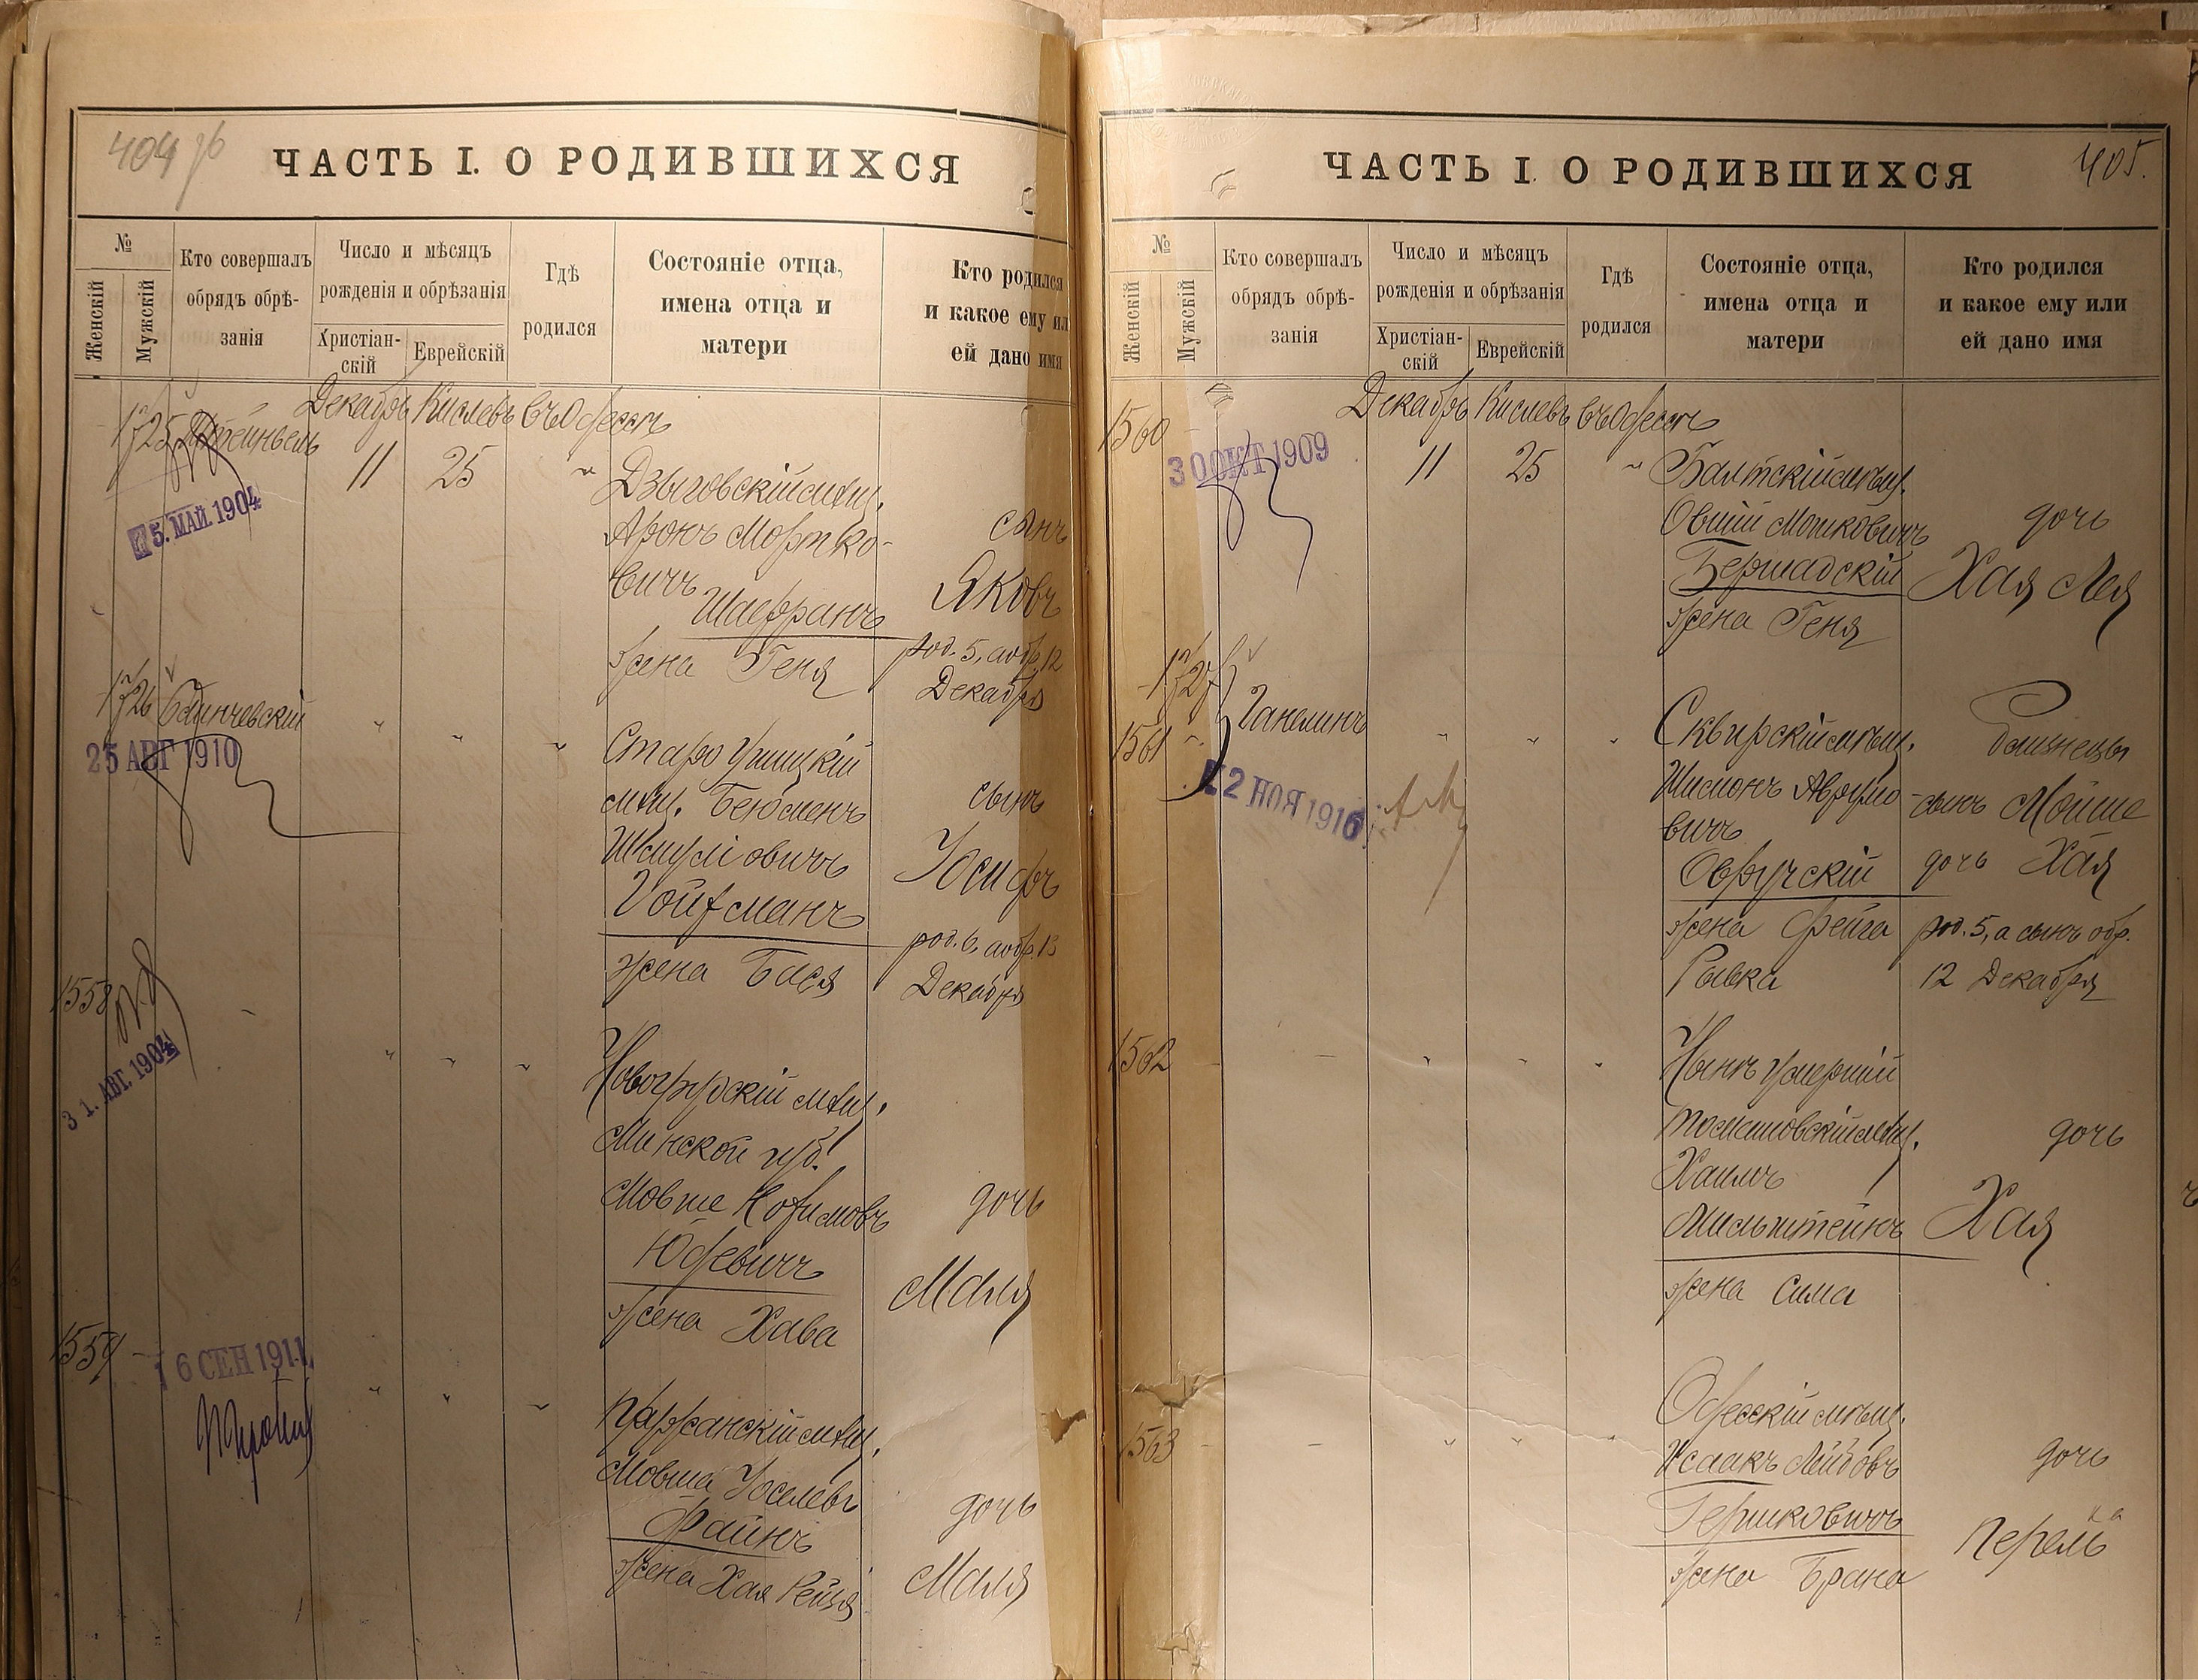 404 об
ЧАСТЬ I. О РОДИВШИХСЯ
№
Женскій
Мужскій
Кто совершалъ
обрядъ обрѣ-
занія
Число и мѣсяцъ
рожденія и обрѣзанія
Христіан-
скій
Еврейскій
Гдѣ
родился
Состояніе отца,
имена отца и
матери
Кто родился
и какое ему ил
ей дано имя
Декабрь Кислевъ въ Одессѣ
1725
11 25 "
5. МАЙ. 1904
Дзыговскій мѣщ.
Аронъ Мортко-
вичъ
Шаефранъ
жена Геня
сынъ
Яковъ
род. 5, а обр. 12
Декабря
1726
" " "
25 АВГ 1910
Старо Ушицкій
мѣщ. Беюменъ
Шмуліовичъ
Гойхманъ
жена Бася
сынъ
Іосифъ
род. 6, а обр. 13
Декабря
1558 -
" " "
31. АВГ. 1904
мѣщ.
Минской губ.
Мовше
Юдевичъ
жена Хава
дочь
Маля
1559 -
" " "
16 СЕН 1911
мѣщ.
Мовша Іоселевъ
Файнъ
жена Хая Рейзя
дочь
Маля
405.
ЧАСТЬ I. О РОДИВШИХСЯ
№
Женскій
Мужскій
Кто совершалъ
обрядъ обрѣ-
занія
Число и мѣсяцъ
рожденія и обрѣзанія
Христіан-
скій
Еврейскій
Гдѣ
родился
Состояніе отца,
имена отца и
матери
Кто родился
и какое ему или
ей дано имя
Декабрь Кислевъ въ Одессѣ
1560 -
11 25 "
30 ОКТ 1909
Балтскій мѣщ.
Овшій Мошковичъ
Бершадскій
жена Геня
дочь
Хая Лея
1727
1561 "
Ганелинъ
" " "
2 НОЯ 1916
Сквирскій мѣщ.
Шимонъ Аврумо-
вичъ
Овручскій
жена Фейга
Рывка
близнецы
сынъ Мойше
дочь Хая
род. 5, а сынъ обр.
12 Декабря
1562 - -
" " "
Нынѣ умершій
Томашовскій мѣщ.
Хаимъ
Мильштейнъ
жена Сима
дочь
Хая
1563 - -
" " "
Одесскій мѣщ.
Исаакъ Лейбовъ
Гершковичъ
жена Брана
дочь
Перель